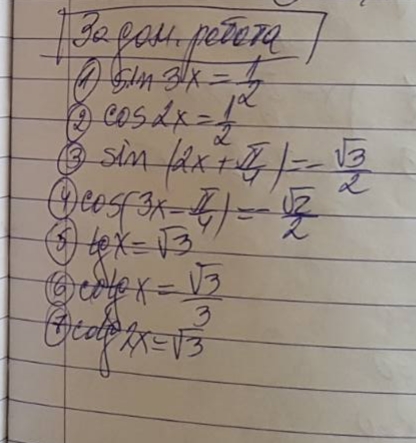 За дом. работа
① sin 3x = 1/2
② cos 2x = 1/2
③ sin (2x + π/4) = -√3/2
④ cos(3x - π/4) = -√2/2
⑤ tgx = √3
⑥ cotgx = √3/3
⑦ cotg 2x = √3